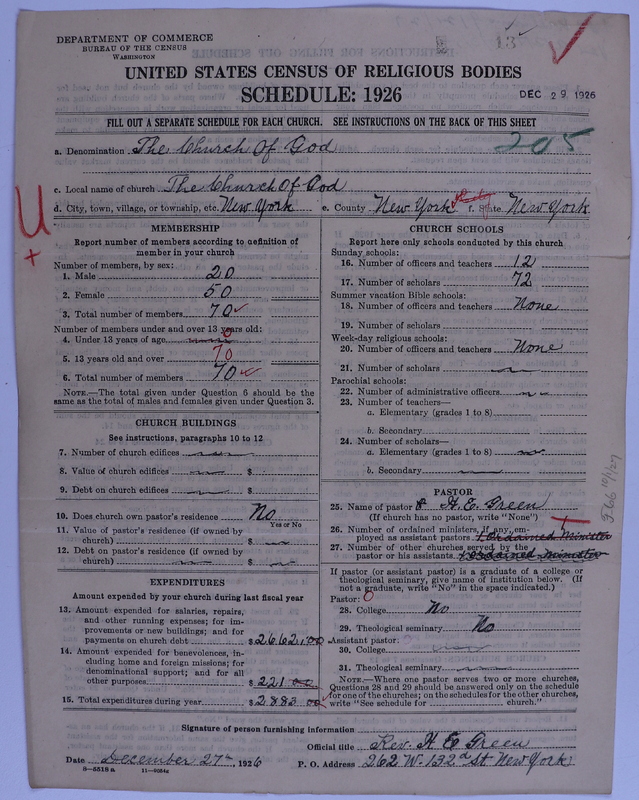 DEPARTMENT OF COMMERCE
BUREAU OF THE CENSUS
WASHINGTON
13
UNITED STATES CENSUS OF RELIGIOUS BODIES
SCHEDULE: 1926
DEC 29 1926
FILL OUT A SEPARATE SCHEDULE FOR EACH CHURCH. SEE INSTRUCTIONS ON THE BACK OF THIS SHEET
205
a. Denomination The Church Of God
c. Local name of church The Church Of God
d. City, town, village, or township, etc. New York e. County New York f. State New York
U
+
MEMBERSHIP
Report number of members according to definition of
member in your church
Number of members, by sex:
1. Male 20
2. Female 50
3. Total number of members 70
Number of members under and over 13 years old:
4. Under 13 years of age 0
5. 13 years old and over 70
6. Total number of members 70
NOTE.—The total given under Question 6 should be
same as the total of males and females given under Question 3.
CHURCH BUILDINGS
See instructions, paragraphs 10 to 12
7. Number of church edifices
8. Value of church edifices $
9. Debt on church edifices $
10. Does church own pastor's residence No
Yes or No
11. Value of pastor's residence (if owned by
church) $
12. Debt on pastor's residence (if owned by
church) $
EXPENDITURES
Amount expended by your church during last fiscal year
13. Amount expended for salaries, repairs,
and other running expenses; for im-
provements or new buildings; and for
payments on church debt $2662.00
14. Amount expended for benevolences, in-
cluding home and foreign missions; for
denominational support; and for all
other purposes $221.00
15. Total expenditures during year $2883.00
CHURCH SCHOOLS
Report here only schools conducted by this church
Sunday schools:
16. Number of officers and teachers 12
17. Number of scholars 72
Summer vacation Bible schools:
18. Number of officers and teachers None
19. Number of scholars
Week-day religious schools:
20. Number of officers and teachers None
21. Number of scholars
Parochial schools:
22. Number of administrative officers
23. Number of teachers—
a. Elementary (grades 1 to 8)
b. Secondary
24. Number of scholars—
a. Elementary (grades 1 to 8)
b. Secondary
PASTOR
25. Name of pastor H. E. Green
(If church has no pastor, write "None")
26. Number of ordained ministers, if any, em-
ployed as assistant pastors 1 ordained Minister
27. Number of other churches served by the
pastor or his assistants 1 ordained Minister
If pastor (or assistant pastor) is a graduate of a college or
theological seminary, give name of institution below. (If
not a graduate, write "No" in the space indicated.)
Pastor: 0
28. College No
29. Theological seminary No
Assistant pastor:
30. College
31. Theological seminary
NOTE.—Where one pastor serves two or more churches,
Questions 28 and 29 should be answered only on the schedule
for one of the churches; on the schedules for the other churches,
write "See schedule for church."
Signature of person furnishing information
Official title Rev. H E Green
Date December 27th, 1926 P. O. Address 262 W. 132nd St New York
8—5518a 11—9054c